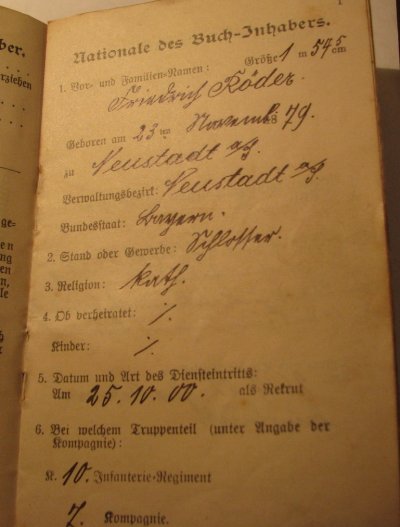 1
Nationale des Buch-Inhabers.
1. Vor- und Familien-Namen: Größe 1 m 545 cm
Friedrich Röder.
Geboren am 23 ten November 79.
zu Neustadt a/H.
Verwaltungsbezirk: Neustadt a/H.
Bundesstaat: Bayern.
2. Stand oder Gewerbe: Schlosser.
3. Religion: kath.
4. Ob verheiratet: /.
Kinder: /.
5. Datum und Art des Diensteintritts:
Am 25.10.00. als Rekrut
6. Bei welchem Truppenteil (unter Angabe der
Kompagnie):
K. 10. Infanterie-Regiment
7. Kompagnie.